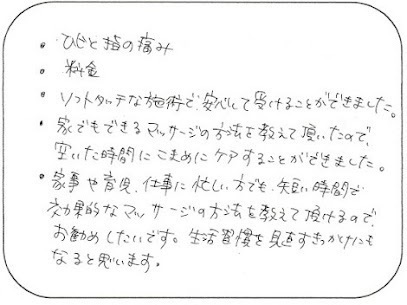 ・ひじと指の痛み
・料金
・ソフトタッチな施術で、安心して受けることができました。
・家でもできるマッサージの方法を教えて頂いたので、
空いた時間にこまめにケアすることができました。
・家事や育児、仕事に忙しい方でも、短い時間で
効果的なマッサージの方法を教えて頂けるので、
お勧めしたいです。生活習慣を見直すきっかけにも
なると思います。